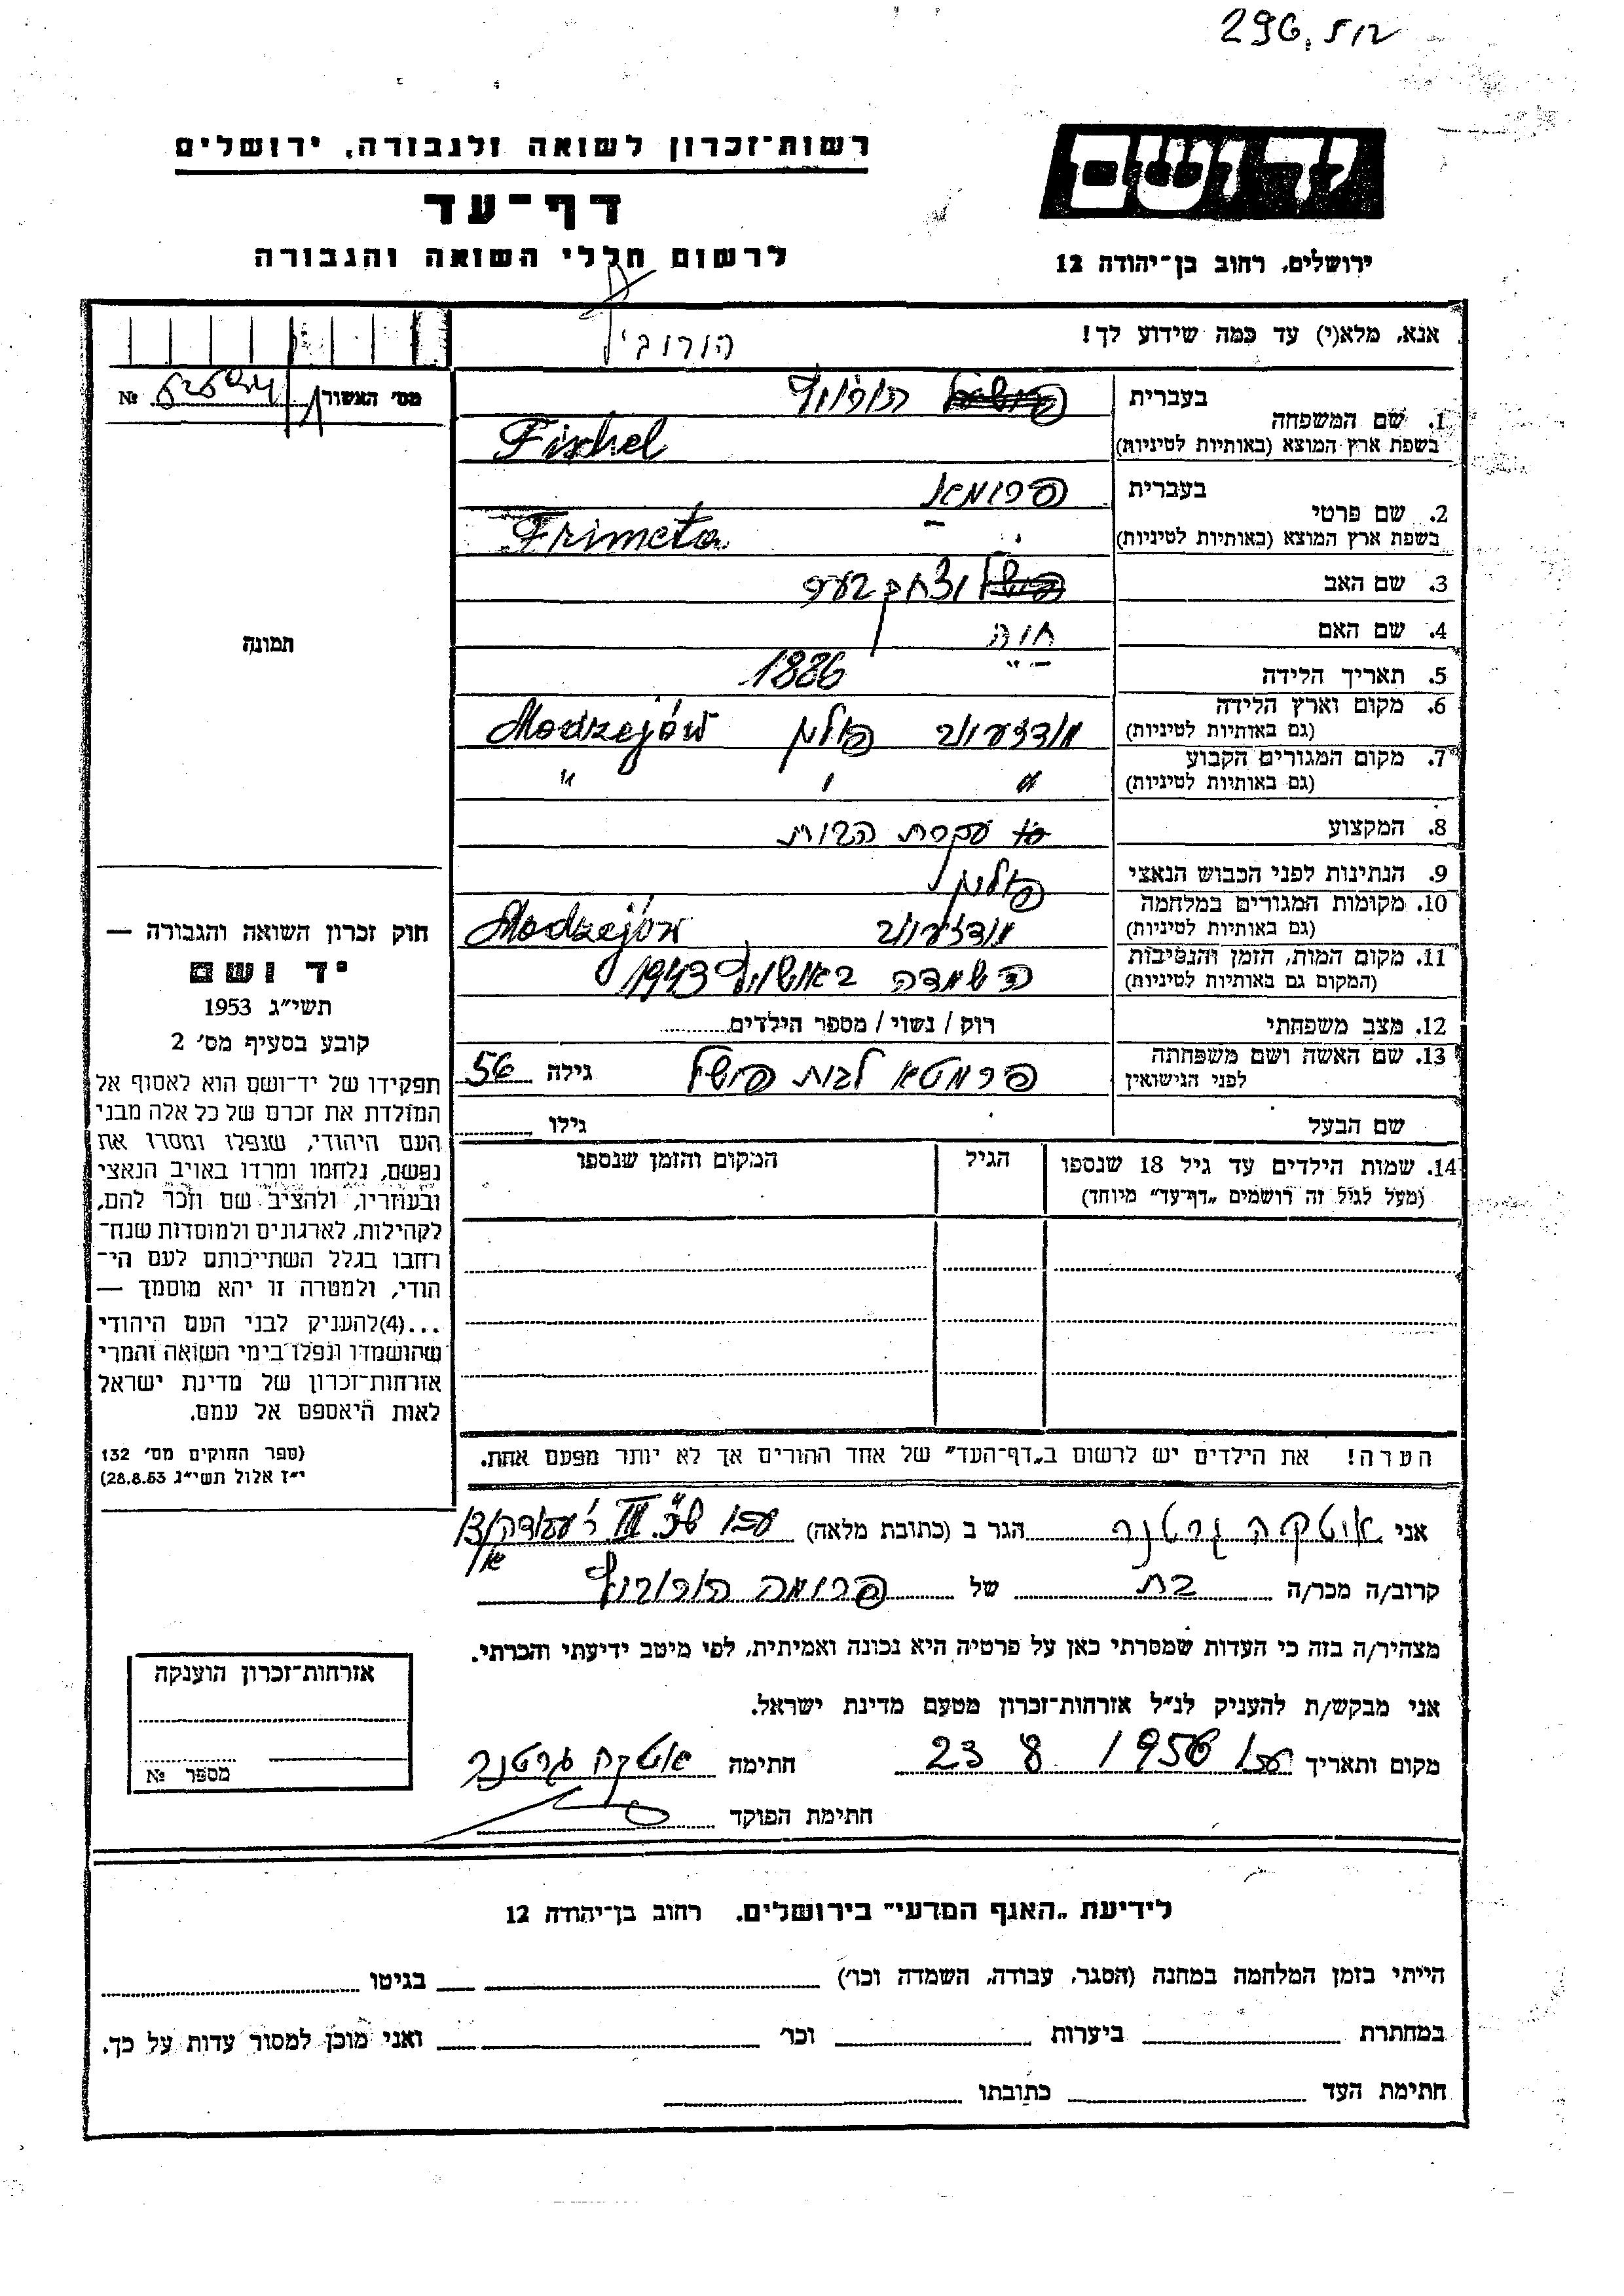 296
רשות־זכרון לשואה ולגבורה, ירושלים
דף־עד
לרשום חללי השואה והגבורה
יד ושם
ירושלים, רחוב בן־יהודה 12
אנא, מלא(י) עד כמה שידוע לך!
מס׳ האשור №
1. שם המשפחה
בעברית
בשפת ארץ המוצא (באותיות לטיניות) Fischel
2. שם פרטי
בעברית
בשפת ארץ המוצא (באותיות לטיניות) Frimeta
3. שם האב
4. שם האם חוה
5. תאריך הלידה 1886
6. מקום וארץ הלידה
(גם באותיות לטיניות) פולין Modrzejów
7. מקום המגורים הקבוע
(גם באותיות לטיניות) " " "
8. המקצוע עקרת הבית
9. הנתינות לפני הכבוש הנאצי פולין
10. מקומות המגורים במלחמה
(גם באותיות לטיניות) Modrzejów
11. מקום המות, הזמן והנסיבות
(המקום גם באותיות לטיניות) השמדה באושויץ 1943
12. מצב משפחתי רוק / נשוי / מספר הילדים
13. שם האשה ושם משפחתה
לפני הנישואין פרמטא לבית פישל גילה 56
שם הבעל גילו
14. שמות הילדים עד גיל 18 שנספו
(מעל לגיל זה רושמים „דף־עד״ מיוחד)
הגיל
המקום והזמן שנספו
הערה! את הילדים יש לרשום ב„דף־העד״ של אחד ההורים אך לא יותר מפעם אחת.
תמונה
חוק זכרון השואה והגבורה —
יד ושם
תשי״ג 1953
קובע בסעיף מס׳ 2
תפקידו של יד־ושם הוא לאסוף אל
המולדת את זכרם של כל אלה מבני
העם היהודי, שנפלו ומסרו את
נפשם, נלחמו ומרדו באויב הנאצי
ובעוזריו, ולהציב שם וזכר להם,
לקהילות, לארגונים ולמוסדות שנח־
רחבו בגלל השתייכותם לעם הי־
הודי, ולמטרה זו יהא מוסמך —
...(4)להעניק לבני העם היהודי
שהושמדו ונפלו בימי השואה והמרי
אזרחות־זכרון של מדינת ישראל
לאות היאספם אל עמם.
(ספר החוקים מס׳ 132
י״ז אלול תשי״ג 28.8.53)
אני אוטקה גרטנר הגר ב (כתובת מלאה) עכו
קרוב/ה מכר/ה בת של פרומה הורוביץ
מצהיר/ה בזה כי העדות שמסרתי כאן על פרטיה היא נכונה ואמיתית, לפי מיטב ידיעתי והכרתי.
אני מבקש/ת להעניק לנ״ל אזרחות־זכרון מטעם מדינת ישראל.
מקום ותאריך עכו 23 8 1956 חתימה אוטקה גרטנר
חתימת הפוקד
אזרחות־זכרון הוענקה
מספר №
לידיעת „האגף המדעי״ בירושלים, רחוב בן־יהודה 12
הייתי בזמן המלחמה במחנה (הסגר, עבודה, השמדה וכו׳) בגיטו
במחתרת ביערות וכו׳ ואני מוכן למסור עדות על כך.
חתימת העד כתובתו